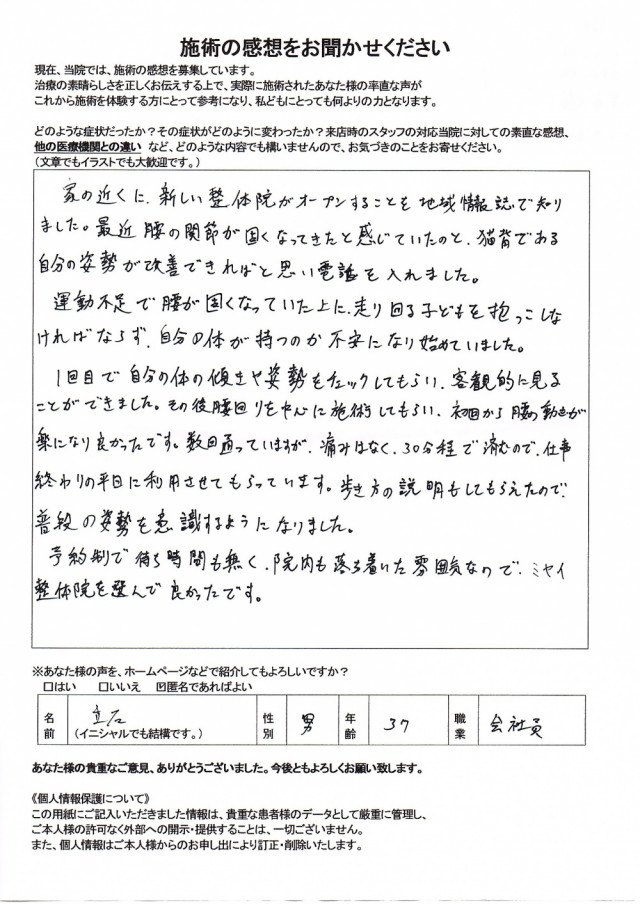 施術の感想をお聞かせください
現在、当院では、施術の感想を募集しています。
治療の素晴らしさを正しくお伝えする上で、実際に施術されたあなた様の率直な声が
これから施術を体験する方にとって参考になり、私どもにとっても何よりの力となります。
どのような症状だったか？その症状がどのように変わったか？来店時のスタッフの対応当院に対しての素直な感想、
他の医療機関との違い など、どのような内容でも構いませんので、お気づきのことをお寄せください。
（文章でもイラストでも大歓迎です。）
家の近くに、新しい整体院がオープンすることを地域情報誌で知り
ました。最近腰の関節が固くなってきたと感じていたのと、猫背である
自分の姿勢が改善できればと思い電話を入れました。
運動不足で腰が固くなっていた上に、走り回る子どもを抱っこしな
ければならず、自分の体が持つのか不安になり始めていました。
1回目で自分の体の傾きや姿勢をチェックしてもらい、客観的に見る
ことができました。その後腰回りを中心に施術してもらい、初回から腰の動きが
楽になり良かったです。数回通っていますが、痛みはなく、30分程で済むので、仕事
終わりの平日に利用させてもらっています。歩き方の説明もしてもらえたので、
普段の姿勢を意識するようになりました。
予約制で待ち時間も無く、院内も落ち着いた雰囲気なので、ミヤイ
整体院を選んで良かったです。
※あなた様の声を、ホームページなどで紹介してもよろしいですか？
□はい □いいえ ☑匿名であればよい
名前 立石 （イニシャルでも結構です。） 性別 男 年齢 37 職業 会社員
あなた様の貴重なご意見、ありがとうございました。今後ともよろしくお願い致します。
《個人情報保護について》
この用紙にご記入いただきました情報は、貴重な患者様のデータとして厳重に管理し、
ご本人様の許可なく外部への開示・提供することは、一切ございません。
また、個人情報はご本人様からのお申し出により訂正・削除いたします。